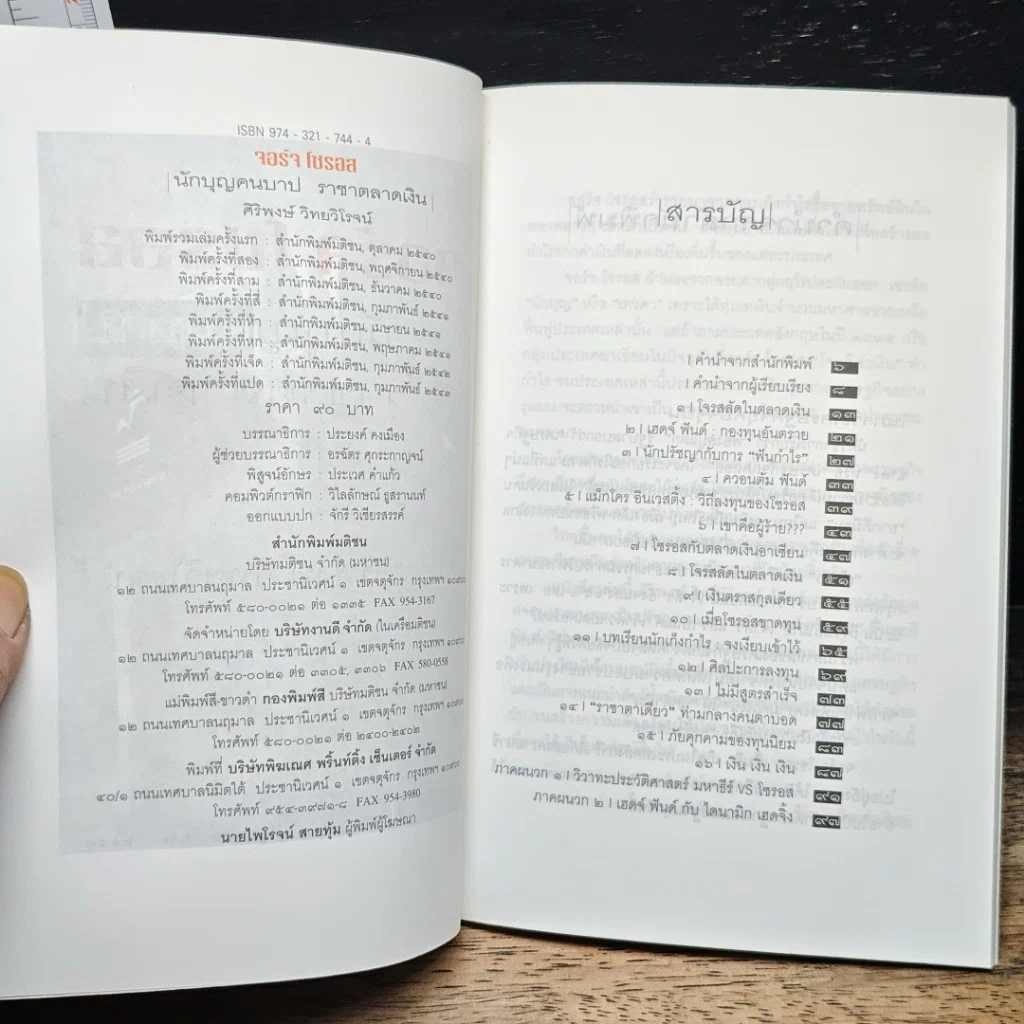 ISBN 974 - 321 - 744 - 4
จอร์จ โซรอส
|นักบุญคนบาป ราชาตลาดเงิน|
ศิริพงษ์ วิทยวิโรจน์
พิมพ์รวมเล่มครั้งแรก : สำนักพิมพ์มติชน, ตุลาคม ๒๕๔๐
พิมพ์ครั้งที่สอง : สำนักพิมพ์มติชน, พฤศจิกายน ๒๕๔๐
พิมพ์ครั้งที่สาม : สำนักพิมพ์มติชน, ธันวาคม ๒๕๔๐
พิมพ์ครั้งที่สี่ : สำนักพิมพ์มติชน, กุมภาพันธ์ ๒๕๔๑
พิมพ์ครั้งที่ห้า : สำนักพิมพ์มติชน, เมษายน ๒๕๔๑
พิมพ์ครั้งที่หก : สำนักพิมพ์มติชน, พฤษภาคม ๒๕๔๑
พิมพ์ครั้งที่เจ็ด : สำนักพิมพ์มติชน, กุมภาพันธ์ ๒๕๔๒
พิมพ์ครั้งที่แปด : สำนักพิมพ์มติชน, กุมภาพันธ์ ๒๕๔๓
ราคา ๙๐ บาท
บรรณาธิการ : ประยงค์ คงเมือง
ผู้ช่วยบรรณาธิการ : อรฉัตร ศุกระกาญจน์
พิสูจน์อักษร : ประเวศ คำแก้ว
คอมพิวต์กราฟิก : วิไลลักษณ์ ธูสรานนท์
ออกแบบปก : จักรี วิเชียรสรรค์
สำนักพิมพ์มติชน
บริษัทมติชน จำกัด (มหาชน)
๑๒ ถนนเทศบาลนฤมาล ประชานิเวศน์ ๑ เขตจตุจักร กรุงเทพฯ ๑๐๙๐๐
โทรศัพท์ ๕๘๐-๐๐๒๑ ต่อ ๑๓๓๕ FAX 954-3167
จัดจำหน่ายโดย บริษัทงานดี จำกัด (ในเครือมติชน)
๑๒ ถนนเทศบาลนฤมาล ประชานิเวศน์ ๑ เขตจตุจักร กรุงเทพฯ ๑๐๙๐๐
โทรศัพท์ ๕๘๐-๐๐๒๑ ต่อ ๓๓๐๕, ๓๓๐๖ FAX 580-0558
แม่พิมพ์สี-ขาวดำ กองพิมพ์สี บริษัทมติชน จำกัด (มหาชน)
๑๒ ถนนเทศบาลนฤมาล ประชานิเวศน์ ๑ เขตจตุจักร กรุงเทพฯ ๑๐๙๐๐
โทรศัพท์ ๕๘๐-๐๐๒๑ ต่อ ๒๔๐๐-๒๔๐๒
พิมพ์ที่ บริษัทพิฆเณศ พริ้นท์ติ้ง เซ็นเตอร์ จำกัด
๔๐/๑ ถนนเทศบาลนิมิตใต้ ประชานิเวศน์ ๑ เขตจตุจักร กรุงเทพฯ ๑๐๙๐๐
โทรศัพท์ ๙๕๔-๓๙๗๑-๘ FAX 954-3980
นายไพโรจน์ สายทุ้ม ผู้พิมพ์ผู้โฆษณา
|สารบัญ|
| คำนำจากสำนักพิมพ์ ๖
| คำนำจากผู้เรียบเรียง ๘
๑ | โจรสลัดในตลาดเงิน ๑๓
๒ | เฮดจ์ ฟันด์ : กองทุนอันตราย ๒๑
๓ | นักปรัชญากับการ “ฟันกำไร” ๒๗
๔ | ควอนตัม ฟันด์ ๓๓
๕ | แม็กโคร อินเวสติ้ง : วิถีลงทุนของโซรอส ๓๙
๖ | เขาคือผู้ร้าย??? ๔๓
๗ | โซรอสกับตลาดเงินอาเซียน ๔๗
๘ | โจรสลัดในตลาดเงิน ๕๑
๙ | เงินตราสกุลเดียว ๕๕
๑๐ | เมื่อโซรอสขาดทุน ๕๙
๑๑ | บทเรียนนักเก็งกำไร : จงเงียบเข้าไว้ ๖๕
๑๒ | ศิลปะการลงทุน ๖๙
๑๓ | ไม่มีสูตรสำเร็จ ๗๓
๑๔ | “ราชาตาเดียว” ท่ามกลางคนตาบอด ๗๗
๑๕ | ภัยคุกคามของทุนนิยม ๘๓
๑๖ | เงิน เงิน เงิน ๘๗
ภาคผนวก ๑ | วิวาทะประวัติศาสตร์ มหาธีร์ VS โซรอส ๙๑
ภาคผนวก ๒ | เฮดจ์ ฟันด์ กับ ไดนามิก เฮดจิ้ง ๙๗